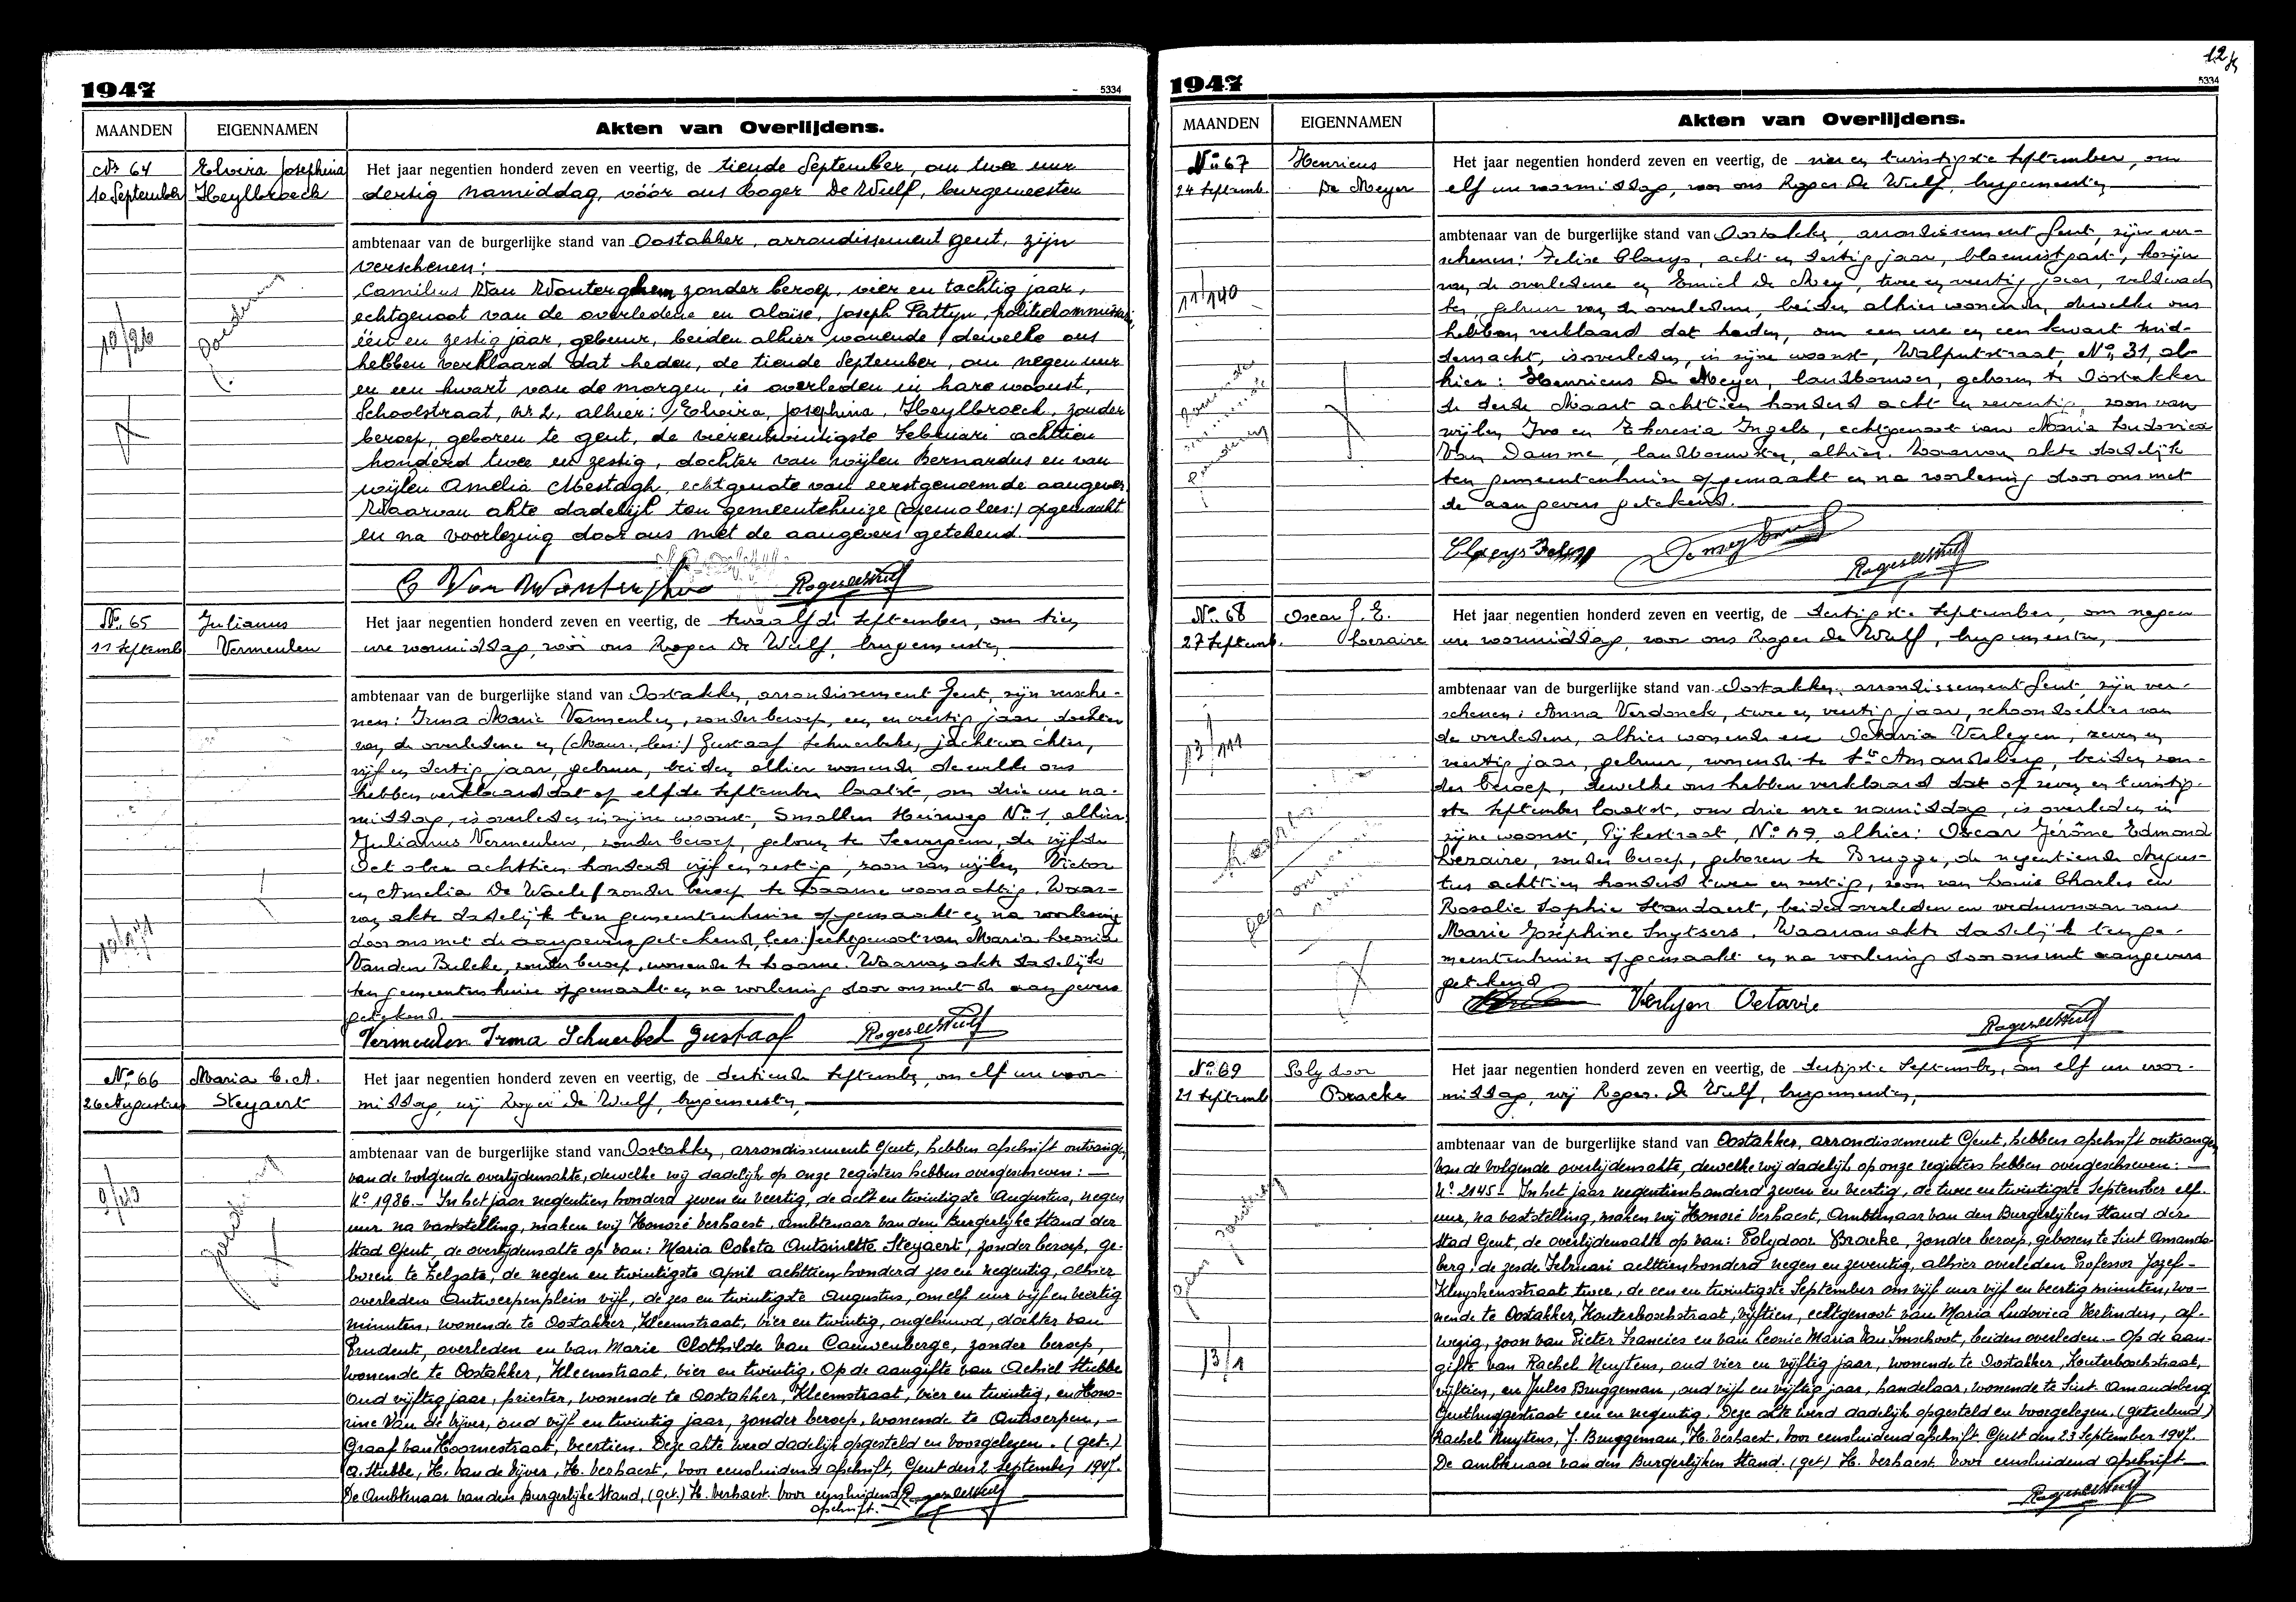 1947
5334
MAANDEN
EIGENNAMEN
Akten van Overlijdens.
Nr 64
10 September
Elvira Josephina
Heylbroeck
Het jaar negentien honderd zeven en veertig, de tiende September, om twee uur
dertig namiddag, vóór ons Roger De Wulf, burgemeester
ambtenaar van de burgerlijke stand van Oostakker, arrondissement Gent, zijn
verschenen:
Camilius Van Wouterghem, zonder beroep, vier en tachtig jaar,
echtgenoot van de overledene en Aloïse, Joseph Pattyn, politiecommissaris,
één en zestig jaar, gebuur, beiden alhier wonende, dewelke ons
hebben verklaard dat heden, de tiende September, om negen uur
en een kwart van de morgen, is overleden in hare woonst,
Schoolstraat, Nr 2, alhier: Elvira, Josephina, Heylbroeck, zonder
beroep, geboren te Gent, de vierentwintigste Februari achttien
honderd twee en zestig, dochter van wijlen Bernardus en van
wijlen Amelia Mestagh, echtgenote van eerstgenoemde aangever.
Waarvan akte dadelijk ten gemeentehuize (opema lees:) opgemaakt
en na voorlezing door ons met de aangevers getekend.
Roger De Wulf
No 65
11 Septemb
Julianus
Vermeulen
Het jaar negentien honderd zeven en veertig, de twaalfde September, om tien
ure voormiddag, vóór ons Roger De Wulf, burgemeester,
ambtenaar van de burgerlijke stand van Oostakker, arrondissement Gent, zijn versche-
nen: Irma Marie Vermeulen, zonder beroep, een en veertig jaar dochter
van de overledene en (Maur. lees:) Gustaaf Schuerbeke, jachtwachter,
vijf en dertig jaar, gebuur, beiden alhier wonende, dewelke ons
hebben verklaard dat op elfde September laatst, om drie ure na-
middag, is overleden in zijne woonst, Smallen Heirweg No 1, alhier
Julianus Vermeulen, zonder beroep, geboren te Seevergem, de vijfde
October achttien honderd vijf en zestig, zoon van wijlen Victor
en Amelia De Waele, zonder beroep te Loorne woonachtig. Waar-
van akte dadelijk ten gemeentenhuize opgemaakt en na voorlezing
door ons met de aangevers getekend, lees:) echtgenoot van Maria Leonia
Vanden Bulcke, zonder beroep, wonende te Loorne. Waarvan akte dadelijk
ten gemeentenhuize opgemaakt en na voorlezing door ons met de aangevers
getekend.
Vermeulen Irma Schuerbek Gustaaf Roger De Wulf
No 66
26 Augustus
Maria C. A.
Steyaert
Het jaar negentien honderd zeven en veertig, de dertiende September, om elf ure voor-
middag, wij Roger De Wulf, burgemeester,
ambtenaar van de burgerlijke stand van Oostakker, arrondissement Gent, hebben afschrift ontvangen
van de volgende overlijdensakte, dewelke wij dadelijk op onze registers hebben overgeschreven:
No 1986.- In het jaar negentien honderd zeven en veertig, de acht en twintigste Augustus, negen
uur na vaststelling, maken wij Honoré Verhaest, Ambtenaar van den Burgerlijke Stand der
Stad Gent, de overlijdensakte op van: Maria Coleta Antoinette Steyaert, zonder beroep, ge-
boren te Zelzate, de negen en twintigste April achttien honderd zes en negentig, alhier
overleden Antwerpenplein vijf, de zes en twintigste Augustus, om elf uur vijf en veertig
minuten, wonende te Oostakker, Kleemstraat, vier en twintig, ongehuwd, dochter van
Prudent, overleden en van Marie Clothilde Van Cauwenberge, zonder beroep,
wonende te Oostakker, Kleemstraat, vier en twintig. Op de aangifte van Achiel Stubbe
oud vijftig jaar, priester, wonende te Oostakker, Kleemstraat, vier en twintig, en Hono-
rine Van de Vijver, oud vijf en twintig jaar, zonder beroep, wonende te Antwerpen,
Graaf van Hoornestraat, veertien. Deze akte werd dadelijk opgesteld en voorgelezen. (get.)
A. Stubbe, H. Van de Vijver, H. Verhaest, voor eensluidend afschrift, Gent den 2 September 1947.
De Ambtenaar van den Burgerlijke Stand, (get.) H. Verhaest. Voor eensluidend
afschrift. Roger De Wulf
1947
5334
MAANDEN
EIGENNAMEN
Akten van Overlijdens.
No 67
24 Septemb.
Henricus
De Meyer
Het jaar negentien honderd zeven en veertig, de vier en twintigste September, om
elf ure voormiddag, voor ons Roger De Wulf, burgemeester,
ambtenaar van de burgerlijke stand van Oostakker, arrondissement Gent, zijn ver-
schenen: Felix Claeys, acht en dertig jaar, bloemist, kozijn
van de overledene en Emiel De Mey, twee en veertig jaar, veldwach-
ter, gebuur van de overledene, beiden alhier wonende, dewelke ons
hebben verklaard dat heden, om een ure en een kwart mid-
dernacht, is overleden, in zijne woonst, Walputstraat, No 31, al-
hier: Henricus De Meyer, landbouwer, geboren te Oostakker
de derde Maart achttien honderd acht en zeventig, zoon van
wijlen Ivo en Theresia Ingels, echtgenoot van Maria Ludovica
Van Damme, landbouwster, alhier. Waarvan akte dadelijk
ten gemeentenhuize opgemaakt en na voorlezing door ons met
de aangevers getekend.
Roger De Wulf
No 68
27 Septemb.
Oscar J. E.
Lezaire
Het jaar negentien honderd zeven en veertig, de dertigste September, om negen
ure voormiddag, voor ons Roger De Wulf, burgemeester,
ambtenaar van de burgerlijke stand van Oostakker, arrondissement Gent, zijn ver-
schenen: Anna Verdonck, twee en veertig jaar, schoondochter van
de overledene, alhier wonende en Octavia Verleyen, zeven en
veertig jaar, gebuur, wonende te St Amandsberg, beiden zon-
der beroep, dewelke ons hebben verklaard dat op zeven en twintig-
ste September laatst, om drie ure namiddag, is overleden in
zijne woonst, Pijkestraat, No 49, alhier: Oscar Jérôme Edmond
Lezaire, zonder beroep, geboren te Brugge, de negentiende Augus-
tus achttien honderd twee en zestig, zoon van Louis Charles en
Rosalie Sophie Standaert, beiden overleden en weduwnaar van
Marie Joséphine Snytsers. Waarvan akte dadelijk ten ge-
meentenhuize opgemaakt en na voorlezing door ons met aangevers
getekend
Verlyen Octavie
Roger De Wulf
No 69
21 Septemb
Polydoor
Bracke
Het jaar negentien honderd zeven en veertig, de dertigste September, om elf ure voor-
middag, wij Roger De Wulf, burgemeester,
ambtenaar van de burgerlijke stand van Oostakker, arrondissement Gent, hebben afschrift ontvangen
van de volgende overlijdensakte, dewelke wij dadelijk op onze registers hebben overgeschreven:
No 2145- In het jaar negentienhonderd zeven en veertig, de twee en twintigste September elf
uur, na vaststelling, maken wij Honoré Verhaest, Ambtenaar van den Burgerlijken Stand der
Stad Gent, de overlijdensakte op van: Polydoor Bracke, zonder beroep, geboren te Sint Amands-
berg, de zesde Februari achttienhonderd negen en zeventig, alhier overleden Professor Jozef-
Kluyskensstraat twee, de een en twintigste September om vijf uur vijf en veertig minuten, wo-
nende te Oostakker, Kouterboschstraat, vijftien, echtgenoot van Maria Ludovica Verlinden, af-
wezig, zoon van Pieter Francies en van Leonie Maria Van Imschoot, beiden overleden.- Op de aan-
gifte van Rachel Nuytens, oud vier en vijftig jaar, wonende te Oostakker, Kouterboschstraat,
vijftien, en Jules Bruggeman, oud vijf en vijftig jaar, handelaar, wonende te Sint Amandsberg
Gentbruggestraat een en negentig. Deze akte werd dadelijk opgesteld en voorgelezen. (getekend)
Rachel Nuytens, J. Bruggeman, H. Verhaest. Voor eensluidend afschrift. Gent den 23 September 1947.
De ambtenaar van den Burgerlijken Stand. (get) H. Verhaest. Voor eensluidend afschrift
Roger De Wulf